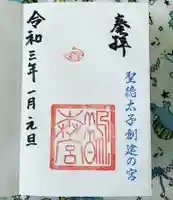 奉拝
聖徳太子創建の宮
令和三年一月元旦